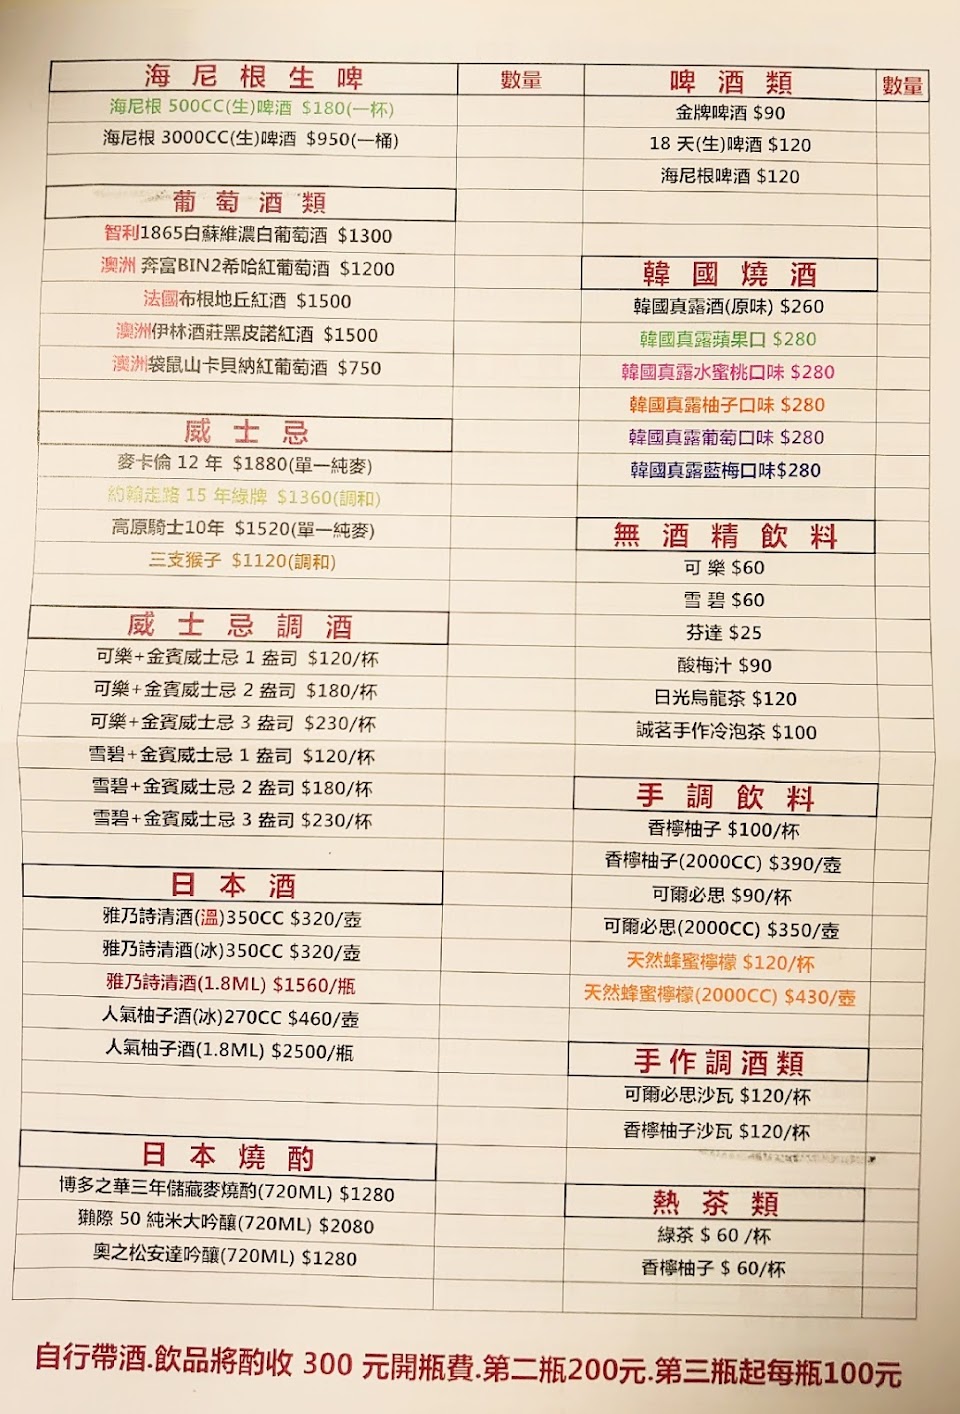 海尼根生啤 數量
海尼根 500CC(生)啤酒 $180(一杯)
海尼根 3000CC(生)啤酒 $950(一桶)
葡萄酒類
智利1865白蘇維濃白葡萄酒 $1300
澳洲 奔富BIN2希哈紅葡萄酒 $1200
法國布根地丘紅酒 $1500
澳洲伊林酒莊黑皮諾紅酒 $1500
澳洲袋鼠山卡貝納紅葡萄酒 $750
威士忌
麥卡倫 12 年 $1880(單一純麥)
約翰走路 15 年綠牌 $1360(調和)
高原騎士10年 $1520(單一純麥)
三支猴子 $1120(調和)
威士忌調酒
可樂+金賓威士忌 1 盎司 $120/杯
可樂+金賓威士忌 2 盎司 $180/杯
可樂+金賓威士忌 3 盎司 $230/杯
雪碧+金賓威士忌 1 盎司 $120/杯
雪碧+金賓威士忌 2 盎司 $180/杯
雪碧+金賓威士忌 3 盎司 $230/杯
日本酒
雅乃詩清酒(溫)350CC $320/壺
雅乃詩清酒(冰)350CC $320/壺
雅乃詩清酒(1.8ML) $1560/瓶
人氣柚子酒(冰)270CC $460/壺
人氣柚子酒(1.8ML) $2500/瓶
日本燒酌
博多之華三年儲藏麥燒酌(720ML) $1280
獺際 50 純米大吟釀(720ML) $2080
奧之松安達吟釀(720ML) $1280
啤酒類 數量
金牌啤酒 $90
18 天(生)啤酒 $120
海尼根啤酒 $120
韓國燒酒
韓國真露酒(原味) $260
韓國真露蘋果口 $280
韓國真露水蜜桃口味 $280
韓國真露柚子口味 $280
韓國真露葡萄口味 $280
韓國真露藍梅口味$280
無酒精飲料
可 樂 $60
雪 碧 $60
芬達 $25
酸梅汁 $90
日光烏龍茶 $120
誠茗手作冷泡茶 $100
手調飲料
香檸柚子 $100/杯
香檸柚子(2000CC) $390/壺
可爾必思 $90/杯
可爾必思(2000CC) $350/壺
天然蜂蜜檸檬 $120/杯
天然蜂蜜檸檬(2000CC) $430/壺
手作調酒類
可爾必思沙瓦 $120/杯
香檸柚子沙瓦 $120/杯
熱茶類
綠茶 $ 60 /杯
香檸柚子 $ 60/杯
自行帶酒.飲品將酌收 300 元開瓶費.第二瓶200元.第三瓶起每瓶100元